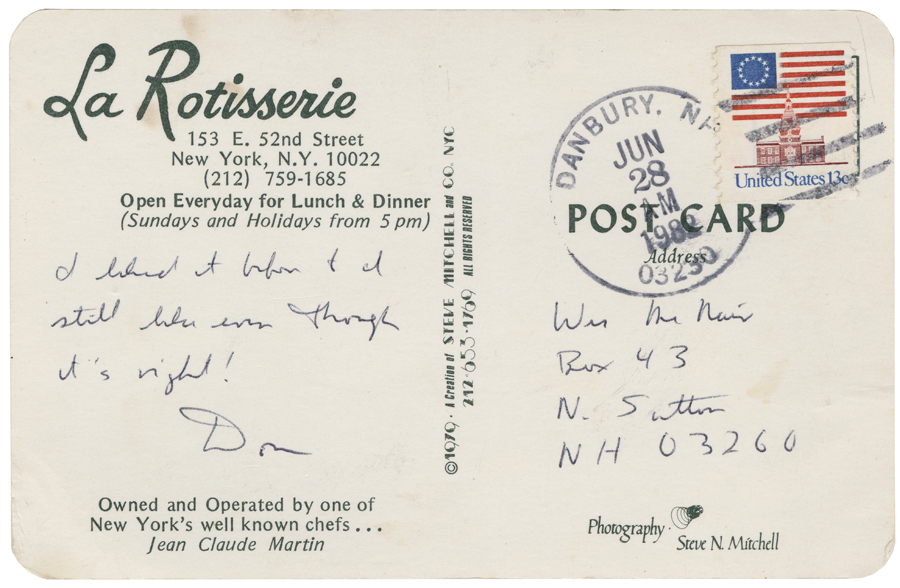 La Rotisserie
153 E. 52nd Street
New York, N.Y. 10022
(212) 759-1685
Open Everyday for Lunch & Dinner
(Sundays and Holidays from 5 pm)
I liked it before & I
still like even though
it's right!
Don
Owned and Operated by one of
New York's well known chefs...
Jean Claude Martin
©1979 · A Creation of STEVE MITCHELL and CO. NYC
212·653·1769 ALL RIGHTS RESERVED
DANBURY, N
JUN
28
1982
03230
United States 13c
POST CARD
Address
Wes McNair
Box 43
N. Sutton
NH 03260
Photography · Steve N. Mitchell